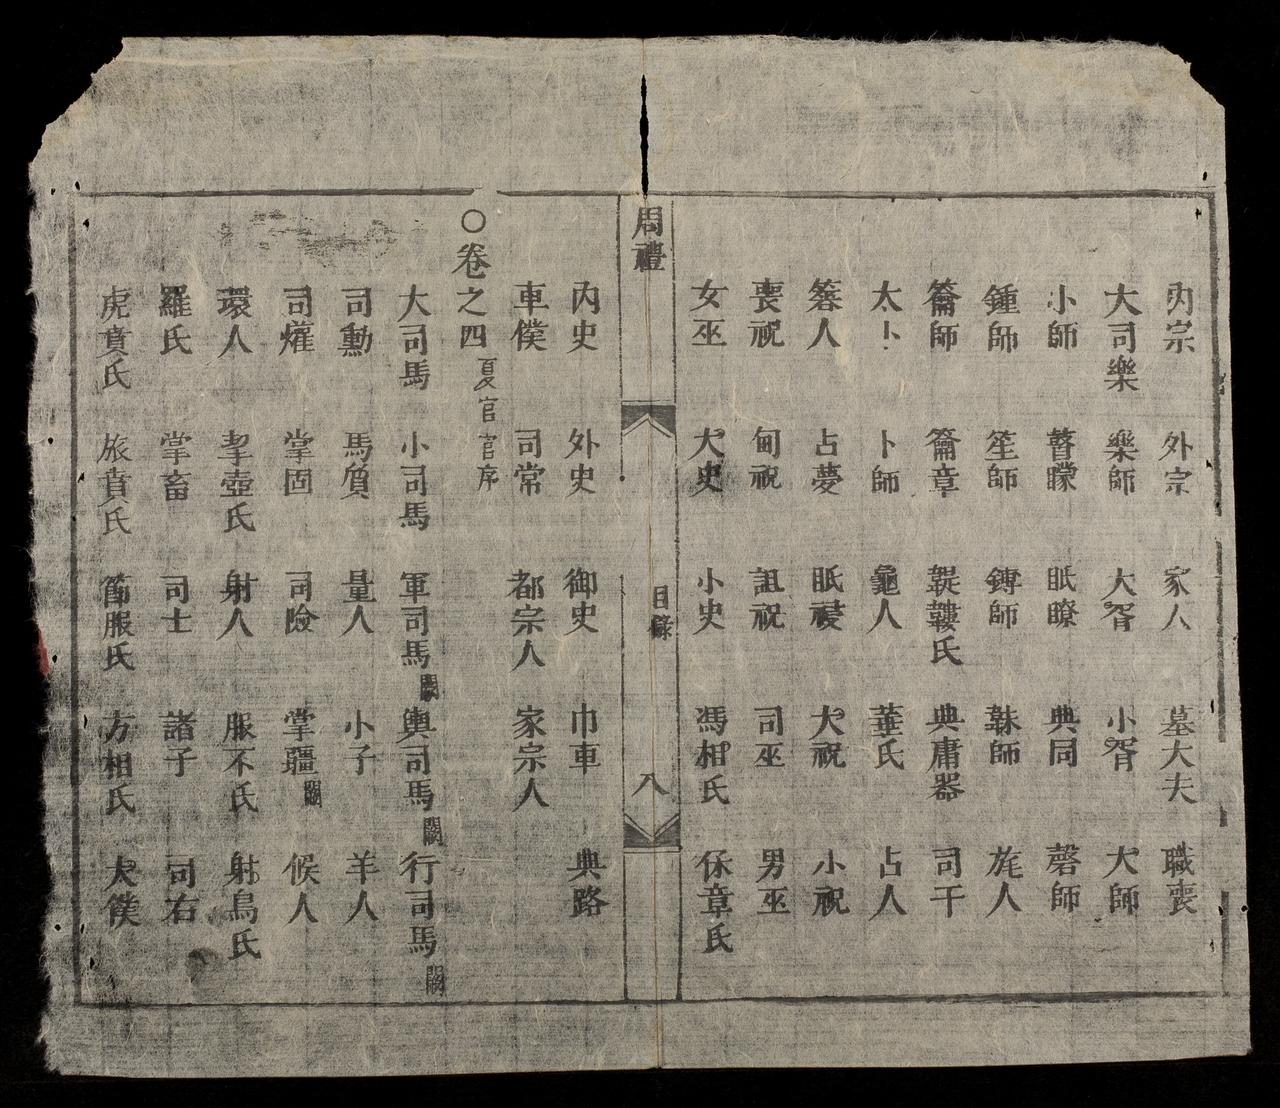 内宗 外宗 家人 墓大夫 職喪
大司樂 樂師 大胥 小胥 大師
小師 瞽矇 眡瞭 典同 磬師
鍾師 笙師 鎛師 韎師 旄人
籥師 籥章 鞮鞻氏 典庸器 司干
太卜 卜師 龜人 菙氏 占人
簭人 占夢 眡祲 大祝 小祝
喪祝 甸祝 詛祝 司巫 男巫
女巫 大史 小史 馮相氏 保章氏
周禮 目錄 八
内史 外史 御史 巾車 典路
車僕 司常 都宗人 家宗人
○卷之四 夏官官序
大司馬 小司馬 軍司馬闕 輿司馬闕 行司馬闕
司勳 馬質 量人 小子 羊人
司爟 掌固 司險 掌疆闕 候人
環人 挈壺氏 射人 服不氏 射鳥氏
羅氏 掌畜 司士 諸子 司右
虎賁氏 旅賁氏 節服氏 方相氏 大僕